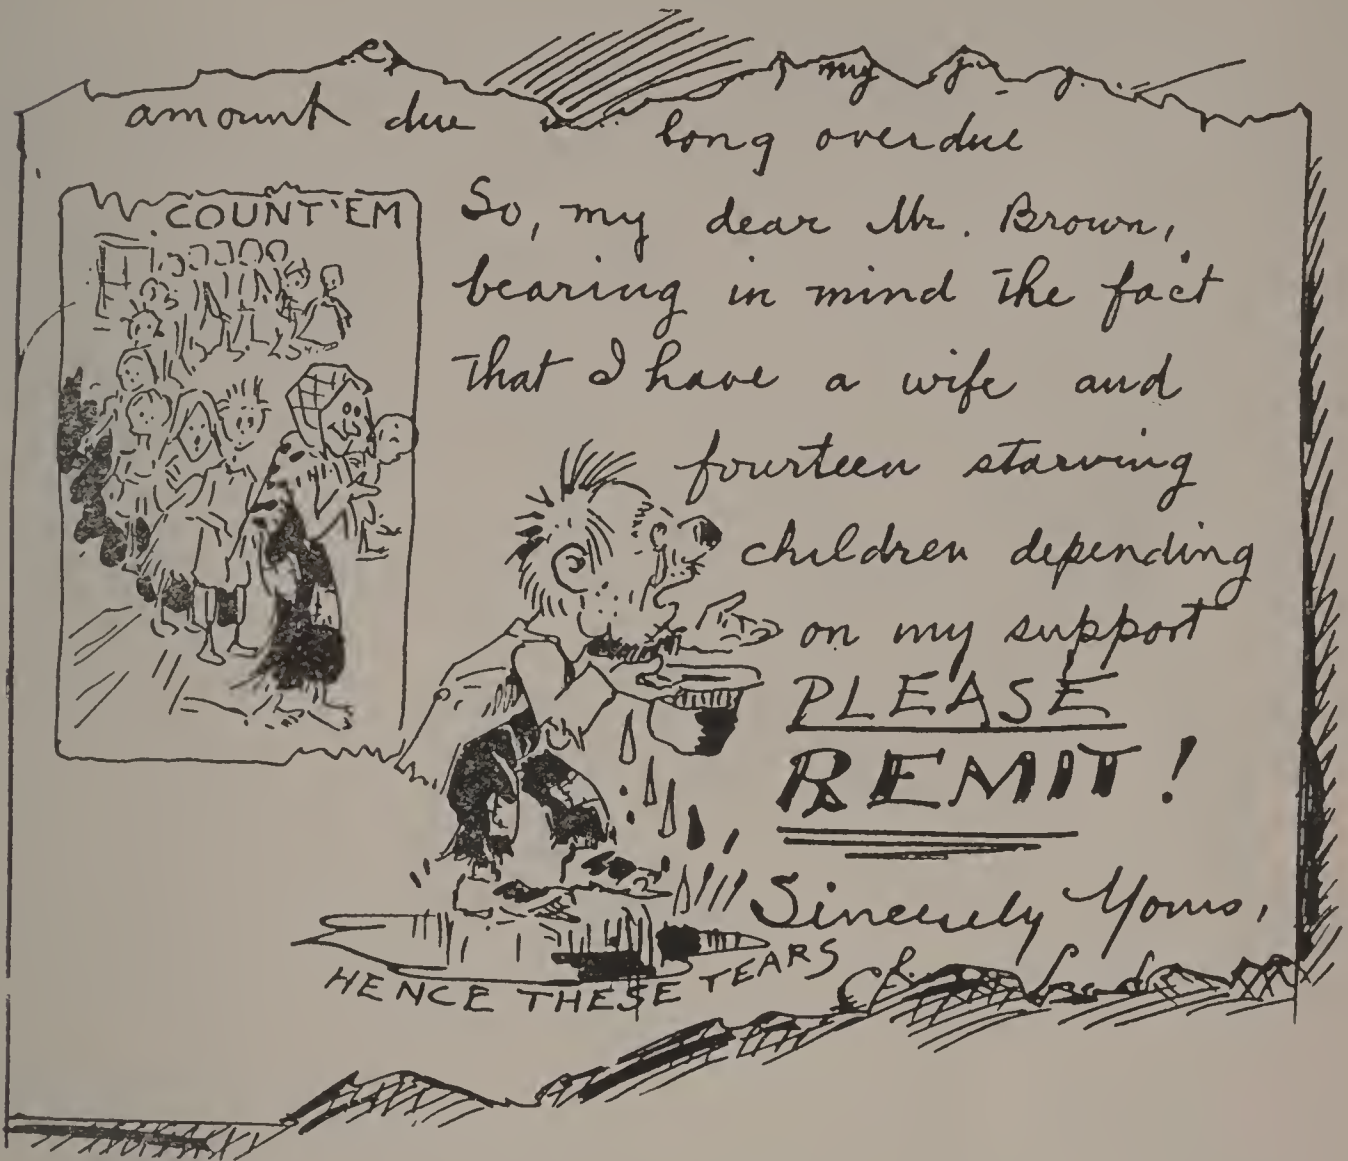 my
amount due is long overdue
COUNT 'EM
So, my dear Mr. Brown,
bearing in mind the fact
that I have a wife and
fourteen starving
children depending
on my support
PLEASE
REMIT!
Sincerely Yours,
HENCE THESE TEARS